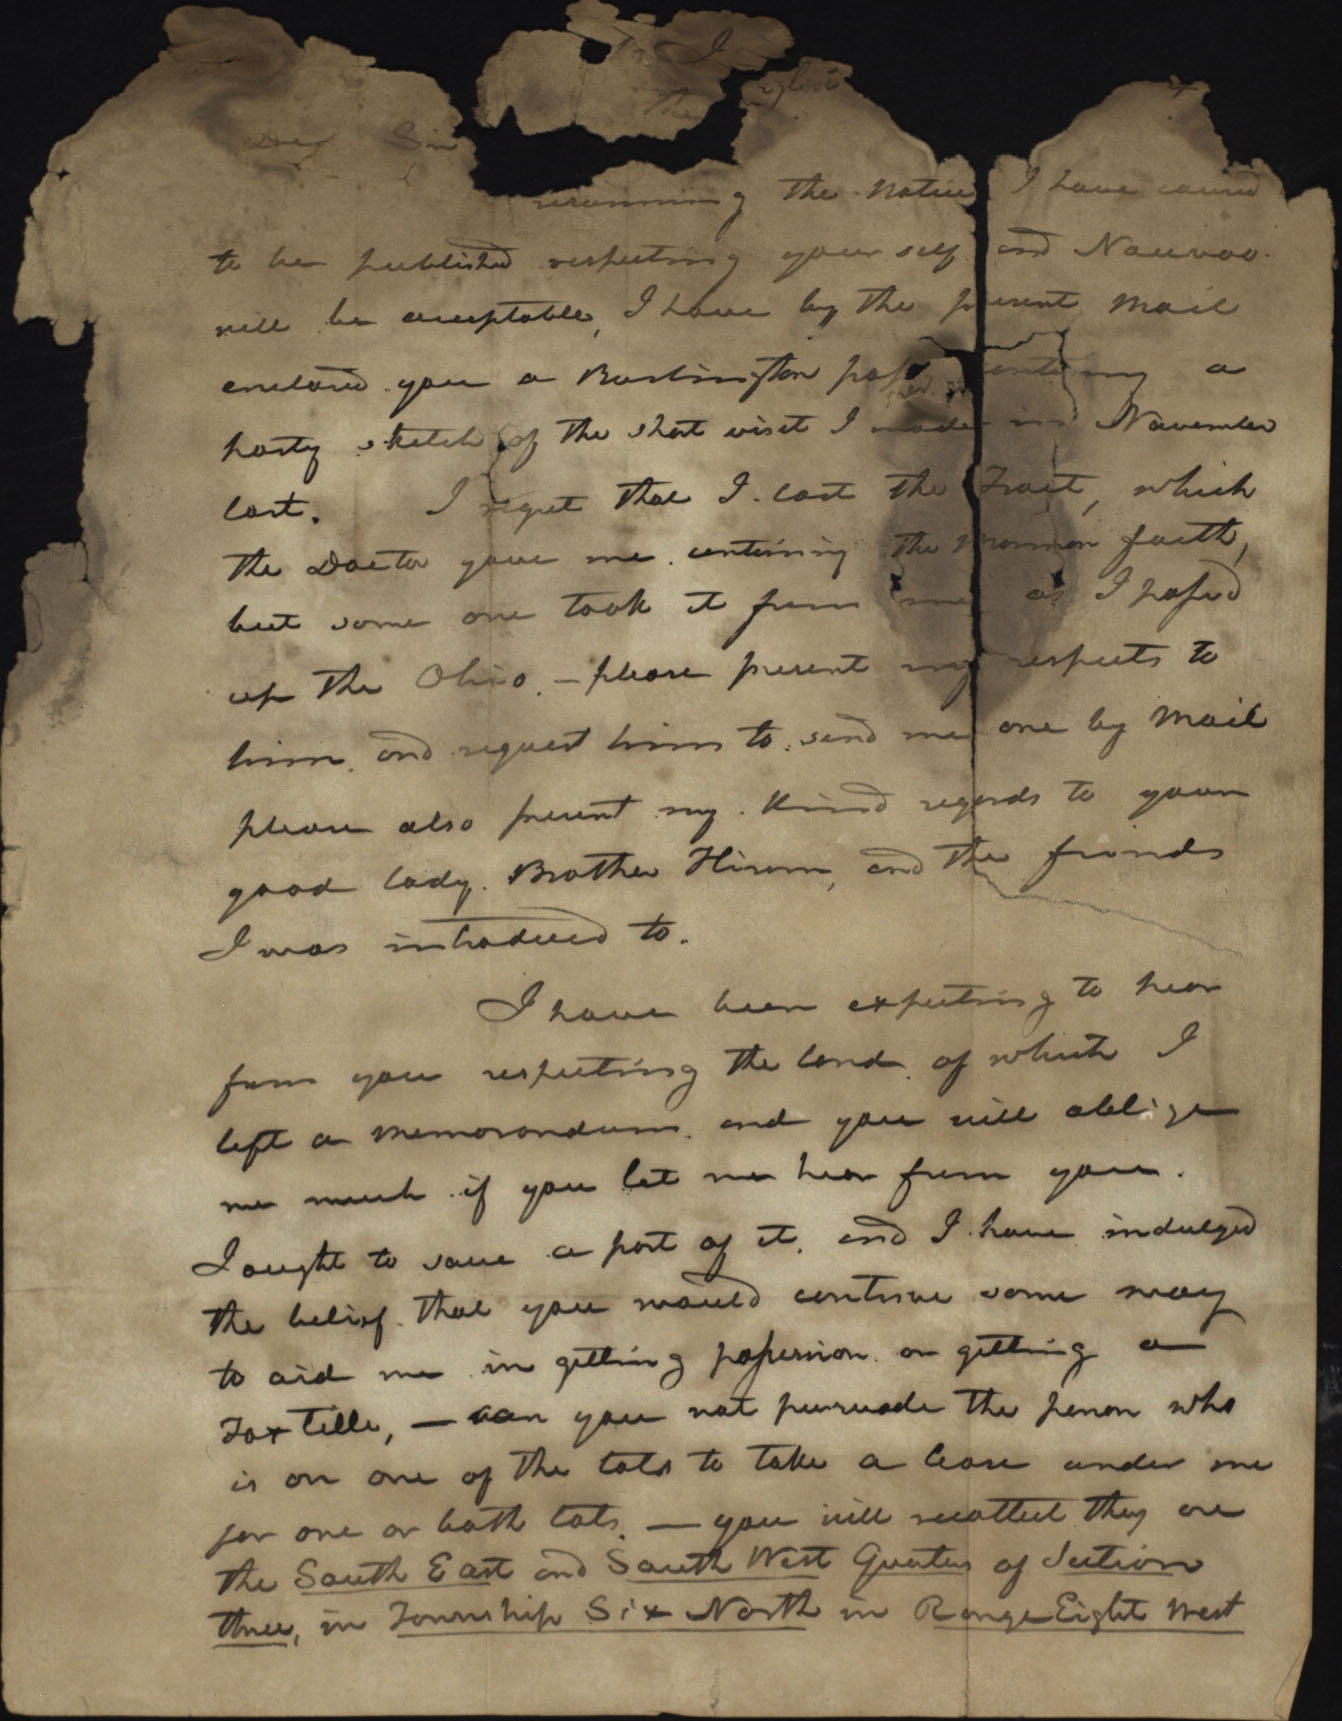 the
Dear Sir
presuming the notice I have caused
to be published respecting your self and Nauvoo.
will be acceptable, I have by the present Mail
enclosed you a Burlington paper containing a
hasty sketch of the short visit I made in November
last. I regret that I lost the Tract, which
the Doctor gave me. containing the Mormon faith,
but some one took it from me as I passed
up the Ohio. — please present my respects to
him. and request him to. send me one by Mail
please also present my. Kind regards to your
good lady. Brother Hiram, and the friends
I was introduced to.
I have been expecting to hear
from you respecting the land. of which I
left a Memorandum. and you will oblige
me much. if you let me hear from you.
I ought to save a part of it. and I have indulged
the belief. that you would contrive some way
to aid me in getting possession. or getting a
Tax title, — can you not persuade the person who
is on one of the lots to take a lease under me
for one or both lots. — you will recollect they are
the South East and South West Quarters of Section
three, in Township Six North in Range Eight West